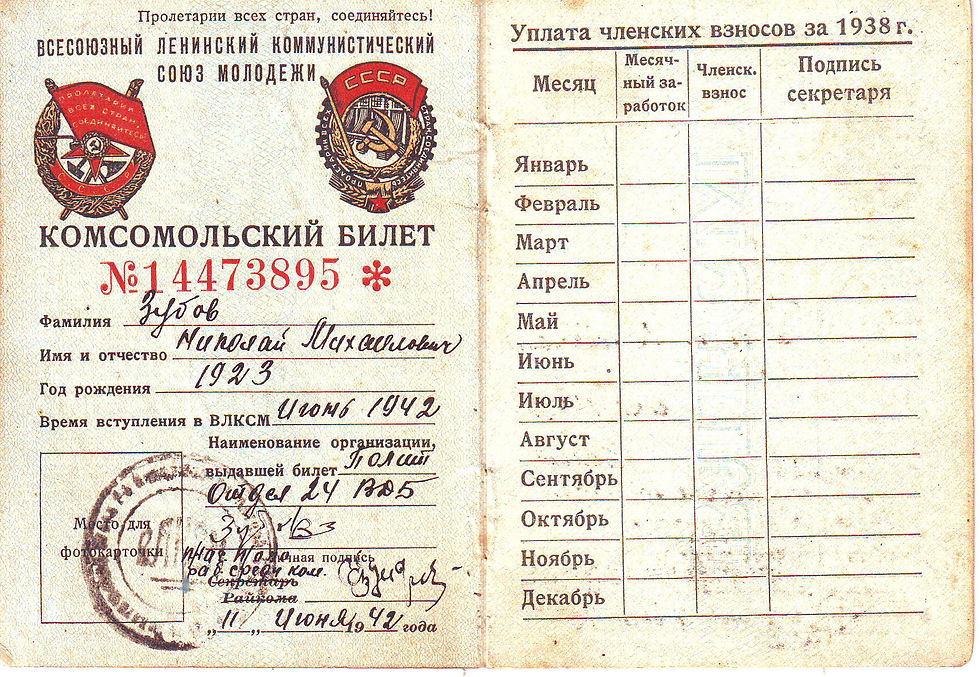 Пролетарии всех стран, соединяйтесь!
ВСЕСОЮЗНЫЙ ЛЕНИНСКИЙ КОММУНИСТИЧЕСКИЙ
СОЮЗ МОЛОДЕЖИ
ПРОЛЕТАРИИ
ВСЕХ СТРАН
СОЕДИНЯЙТЕСЬ
СССР
СССР
КОМСОМОЛЬСКИЙ БИЛЕТ
№14473895 *
Фамилия Зубов
Имя и отчество Николай Михайлович
Год рождения 1923
Время вступления в ВЛКСМ Июнь 1942
Наименование организации,
выдавшей билет Полит
Отдел 24 ВДБ
Место для
фотокарточки
Личная подпись
раб. среди ком.
Секретарь
Райкома
„11„ Июня 1942 года
Уплата членских взносов за 1938 г.
Месяц
Месяч-
ный за-
работок
Членск.
взнос
Подпись
секретаря
Январь
Февраль
Март
Апрель
Май
Июнь
Июль
Август
Сентябрь
Октябрь
Ноябрь
Декабрь